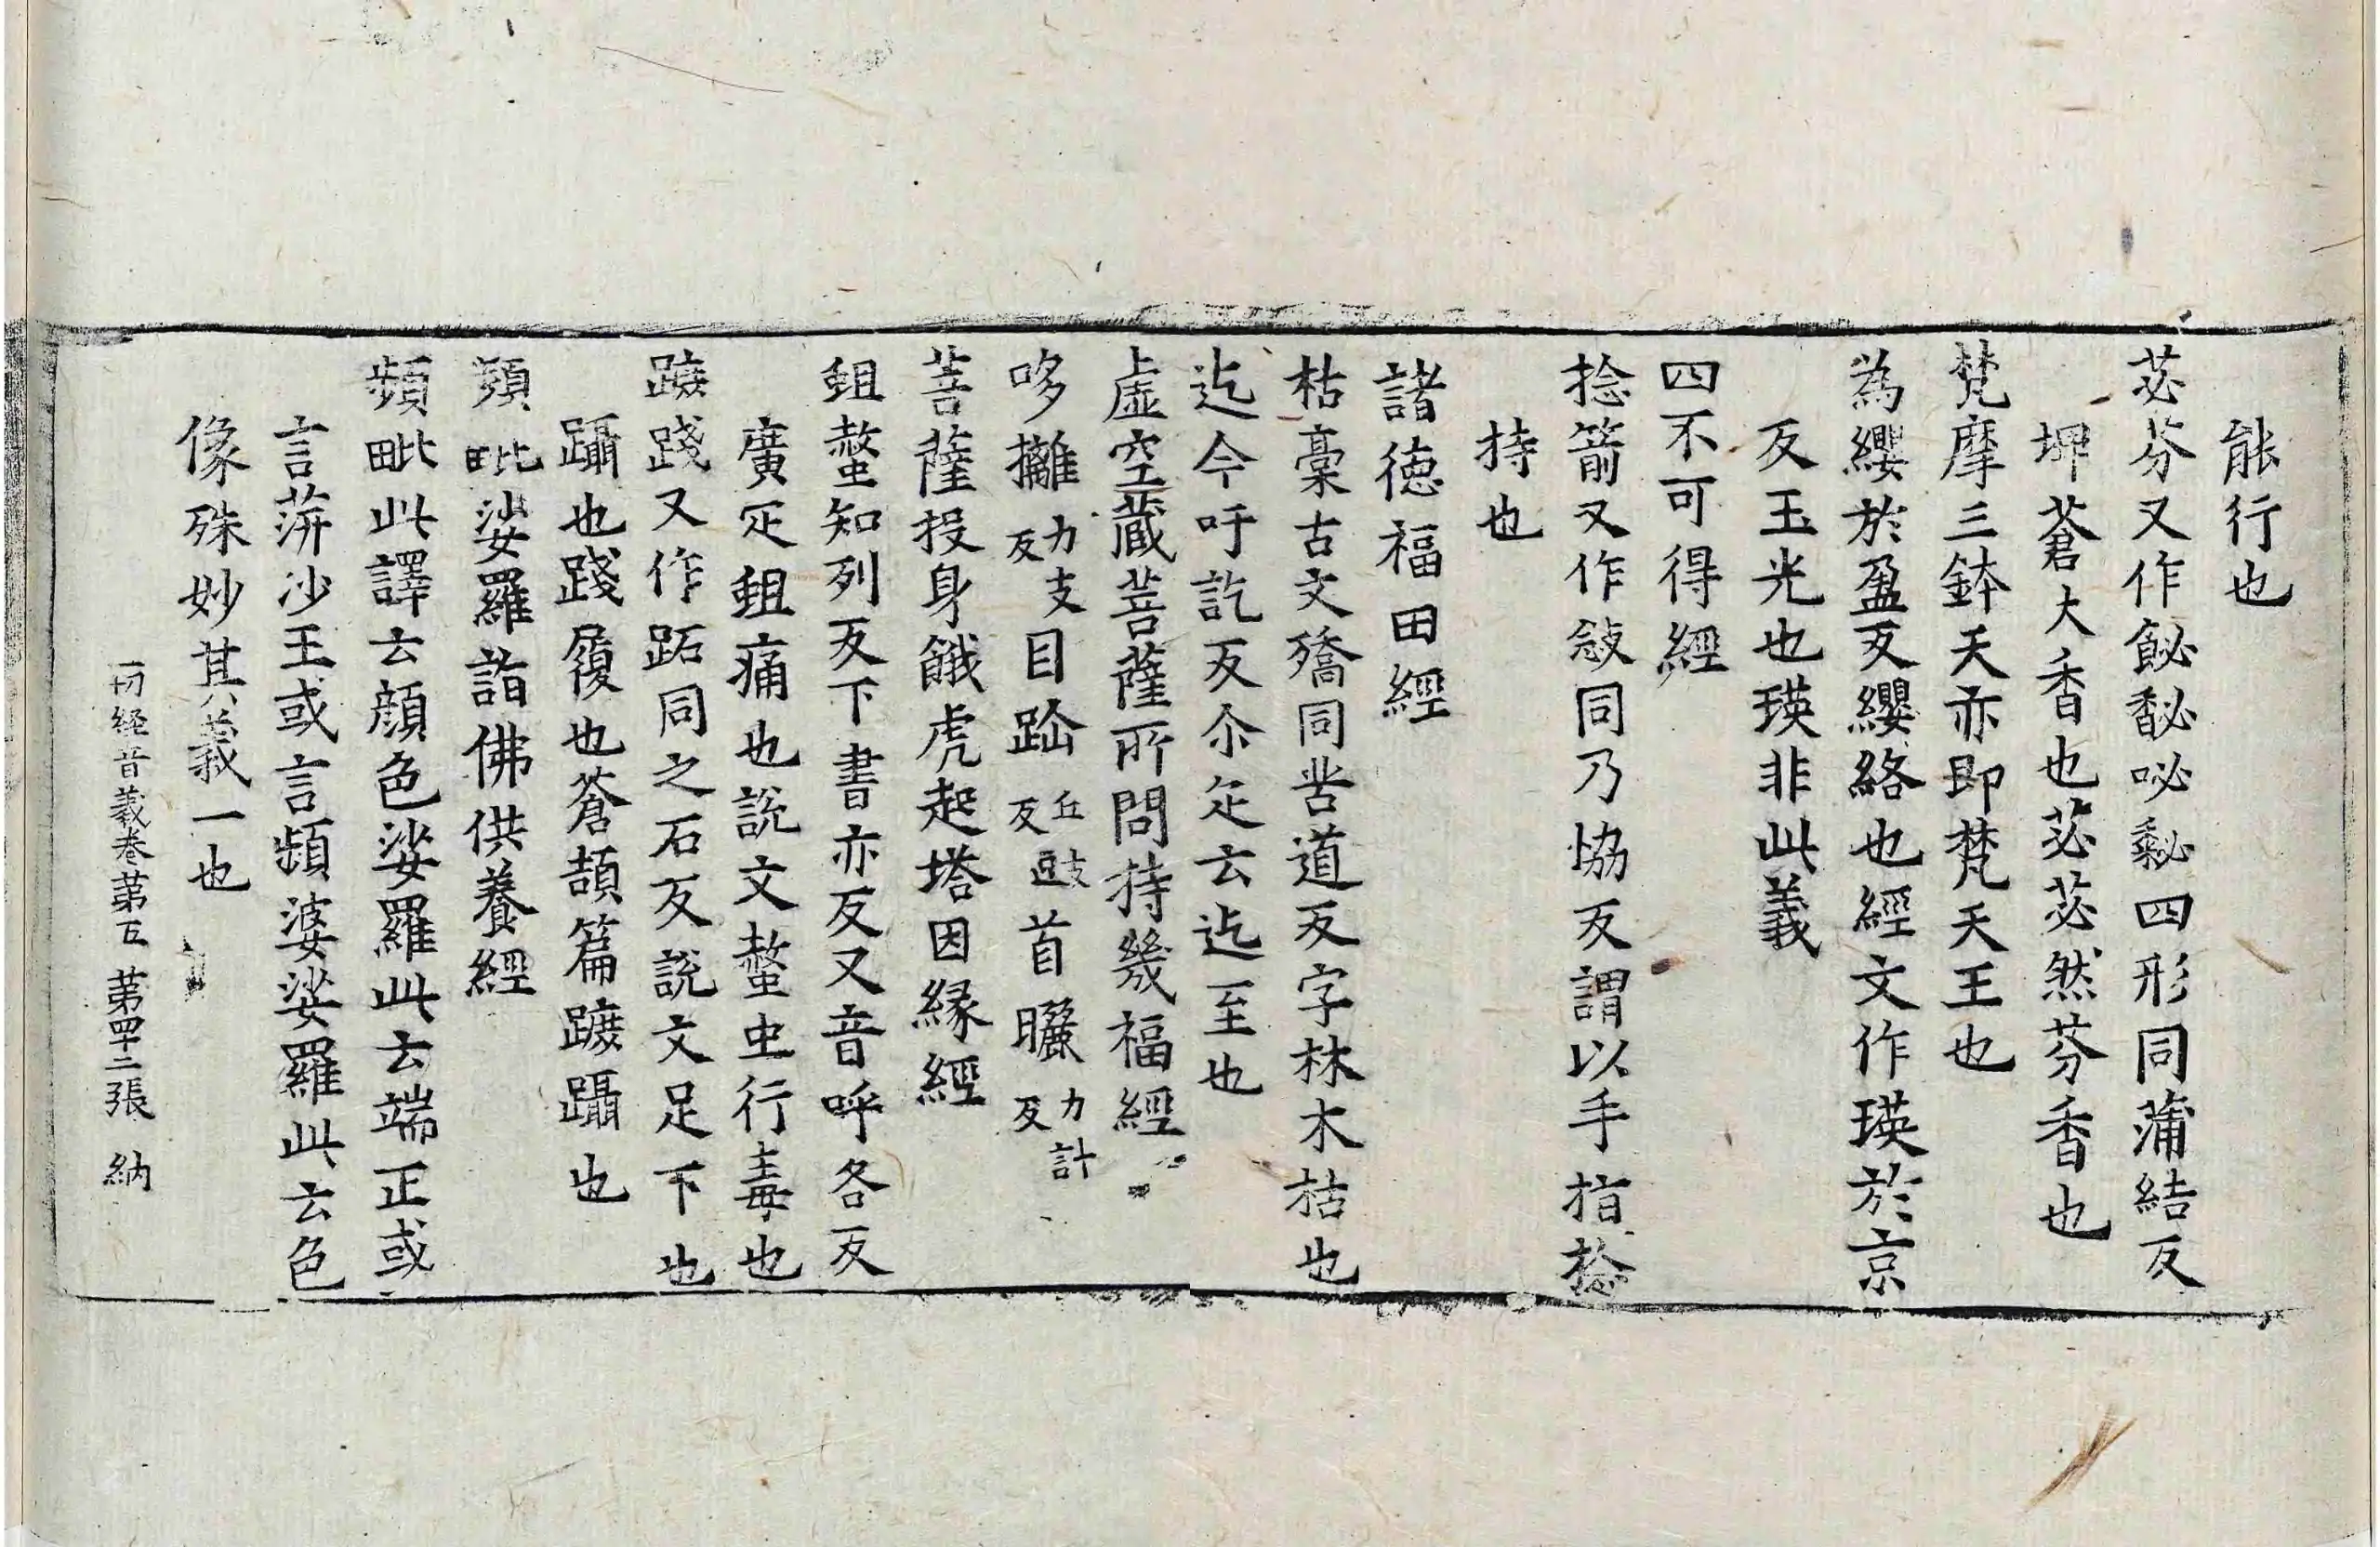 能行也
苾芬又作飶馝咇䅫四形同蒲結反
埤蒼大香也苾苾然芬香也
梵摩三鉢天亦即梵天王也
為纓於盈反纓絡也經文作瑛於京
反玉光也瑛非此義
四不可得經
捻箭又作敜同乃協反謂以手指捻
持也
諸德福田經
枯槀古文殦同苦道反字林木枯也
迄今吁訖反尒疋云迄至也
虛空藏菩薩所問持幾福經
哆攡力支反目𨀁丘豉反首曬力計反
菩薩投身餓虎起塔因緣經
蛆螫知列反下書亦反又音呼各反
廣疋蛆痛也說文螫虫行毒也
蹠踐又作跖同之石反說文足下也
躡也踐履也蒼頡篇蹠躡也
頻毗娑羅詣佛供養經
頻毗此譯云顏色娑羅此云端正或
言蓱沙王或言頻婆娑羅此云色
像殊妙其義一也
一切经音義卷第五 第四十二張 納